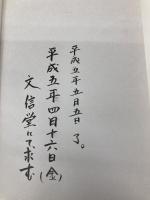 平成五年五月五日 了。
平成五年四月十六日(金)
文信堂にて求む